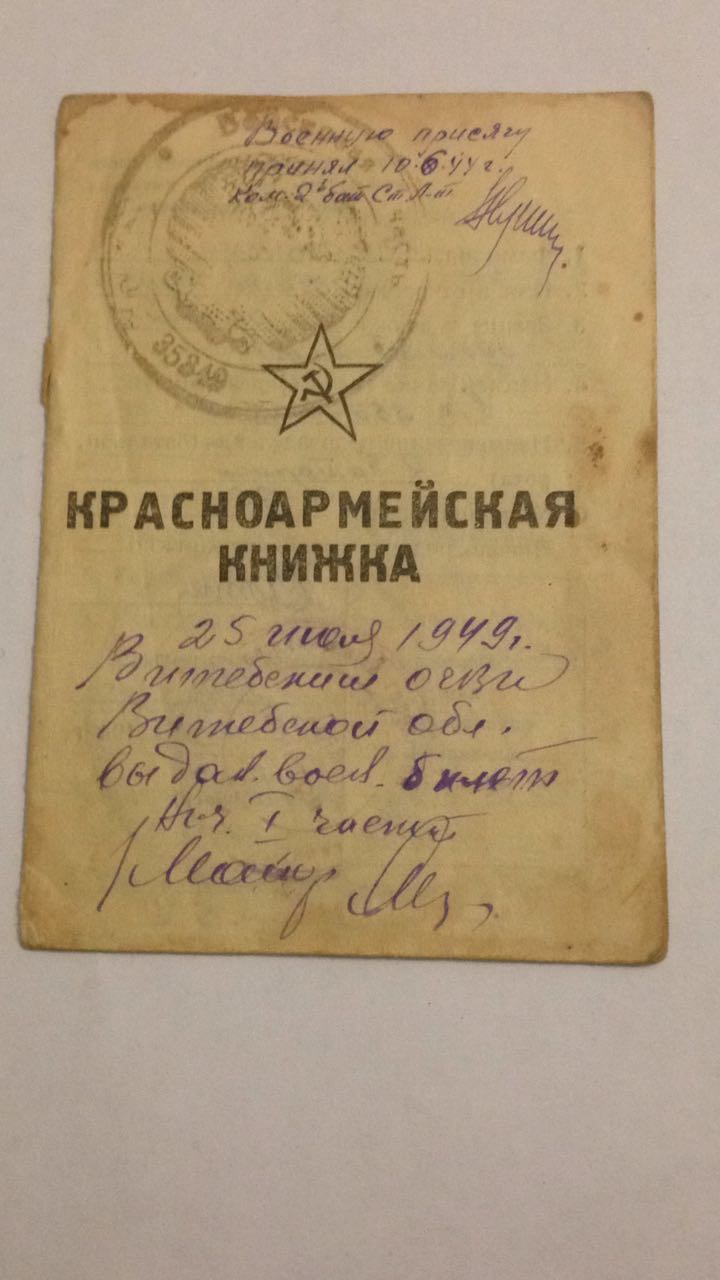 Военную присягу
принял 10.6.44 г.
Ком. 2 бат Ст Л-т
часть
35849
КРАСНОАРМЕЙСКАЯ
КНИЖКА
25 июля 1949г.
Витебским
Витебской обл.
выдан. воен. билет
Нач. I части
Майор